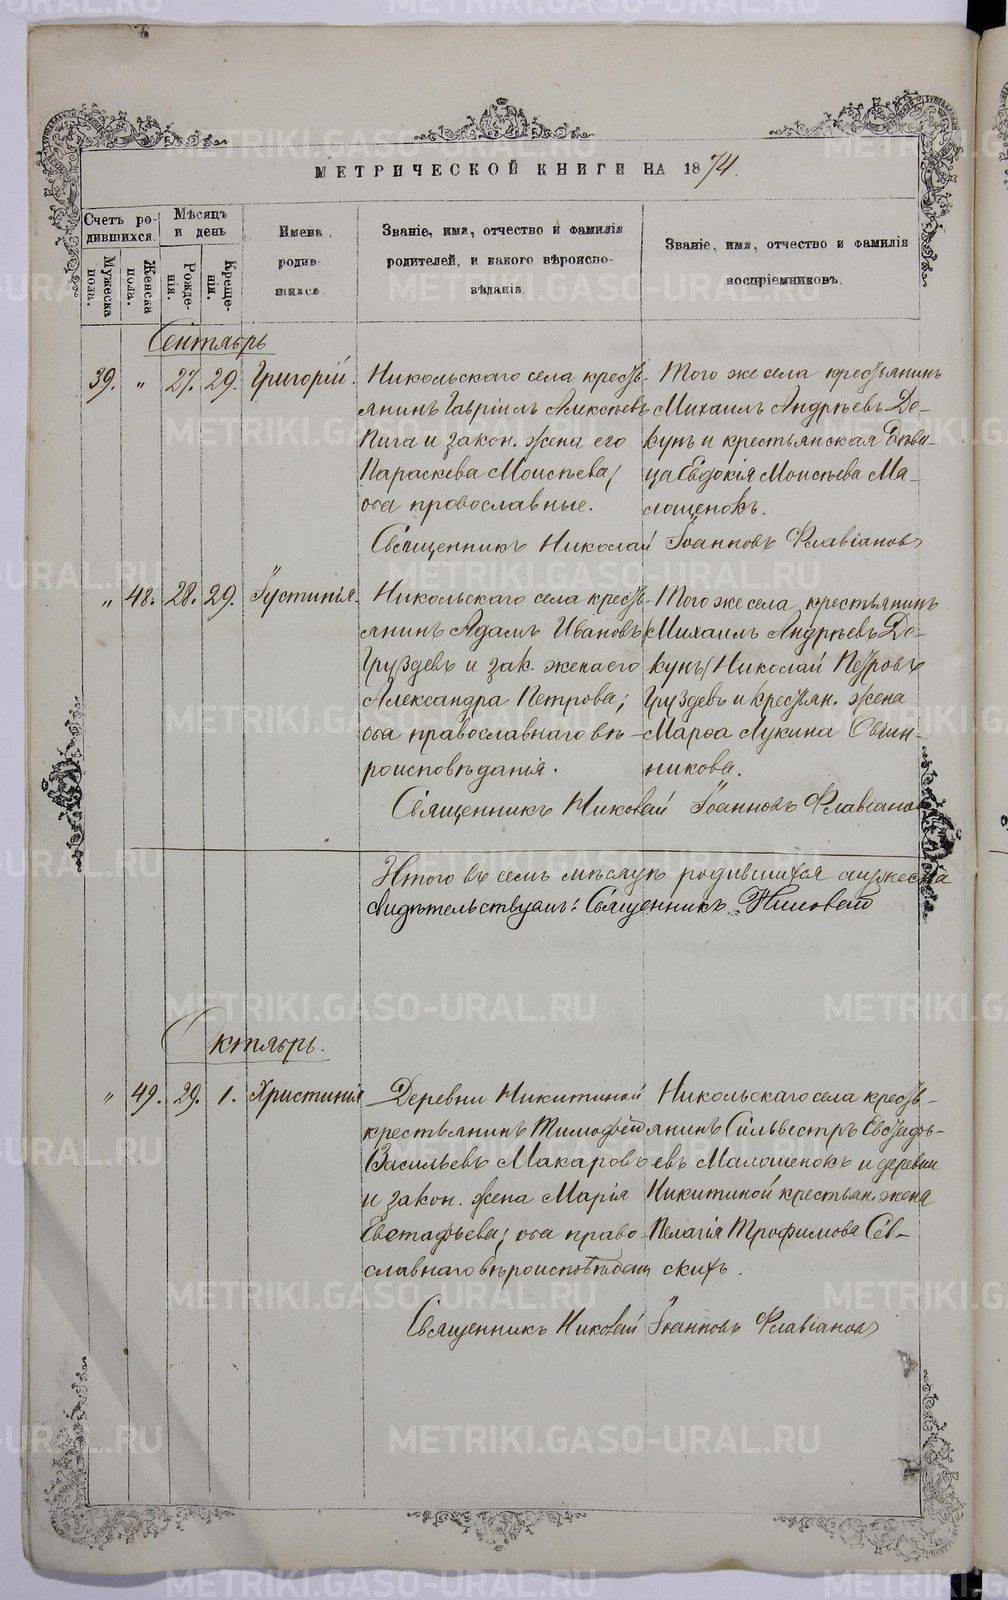 МЕТРИЧЕСКОЙ КНИГИ НА 1874.
Счетъ родившихся.
Мужеска пола.
Женска пола.
Мѣсяцъ и день
Рожденія.
Крещенія.
Имена родившихся.
Званіе, имя, отчество и фамилія
родителей, и какого вѣроиспо-
вѣданія.
Званіе, имя, отчество и фамилія
воспріемниковъ.
Сентябрь
39. " 27. 29. Григорій.
Никольскаго села кресть-
янинъ Гавріилъ Алексѣевъ
и закон. жена его
Параскева Моисѣева,
оба православные.
Того же села крестьянинъ
Михаилъ Андрѣевъ Де-
кунъ и крестьянская дѣви-
ца Евдокія Моисѣева Ма-
лошенокъ.
Священникъ Николай Іоанновъ Флавіановъ
" 48. 28. 29. Іустинія.
Никольскаго села кресть-
янинъ Адамъ Ивановъ
Груздевъ и зак. жена его
Александра Петрова;
оба православнаго вѣ-
роисповѣданія.
Того же села, крестьянинъ
Михаилъ Андрѣевъ Де-
кунъ, Николай Петровъ
Груздевъ и крестьян. жена
Марѳа Лукина Овчин-
никова.
Священникъ Николай Іоанновъ Флавіановъ
Итого въ семъ мѣсяцѣ родившихся мужеска
свидѣтельствуемъ: Священникъ Николай
Октябрь.
" 49. 29. 1. Христинія
Деревни Никитиной
крестьянинъ Тимофей
Васильевъ Макаровъ
и закон. жена Марія
Евстафьева; оба право-
славнаго вѣроисповѣдан
Никольскаго села кресть-
янинъ Сильвестръ Евстафь-
евъ Малошенокъ и деревни
Никитиной крестьян. жена
Пелагія Трофимова Сев-
скихъ.
Священникъ Николай Іоанновъ Флавіановъ
METRIKI.GASO-URAL.RU